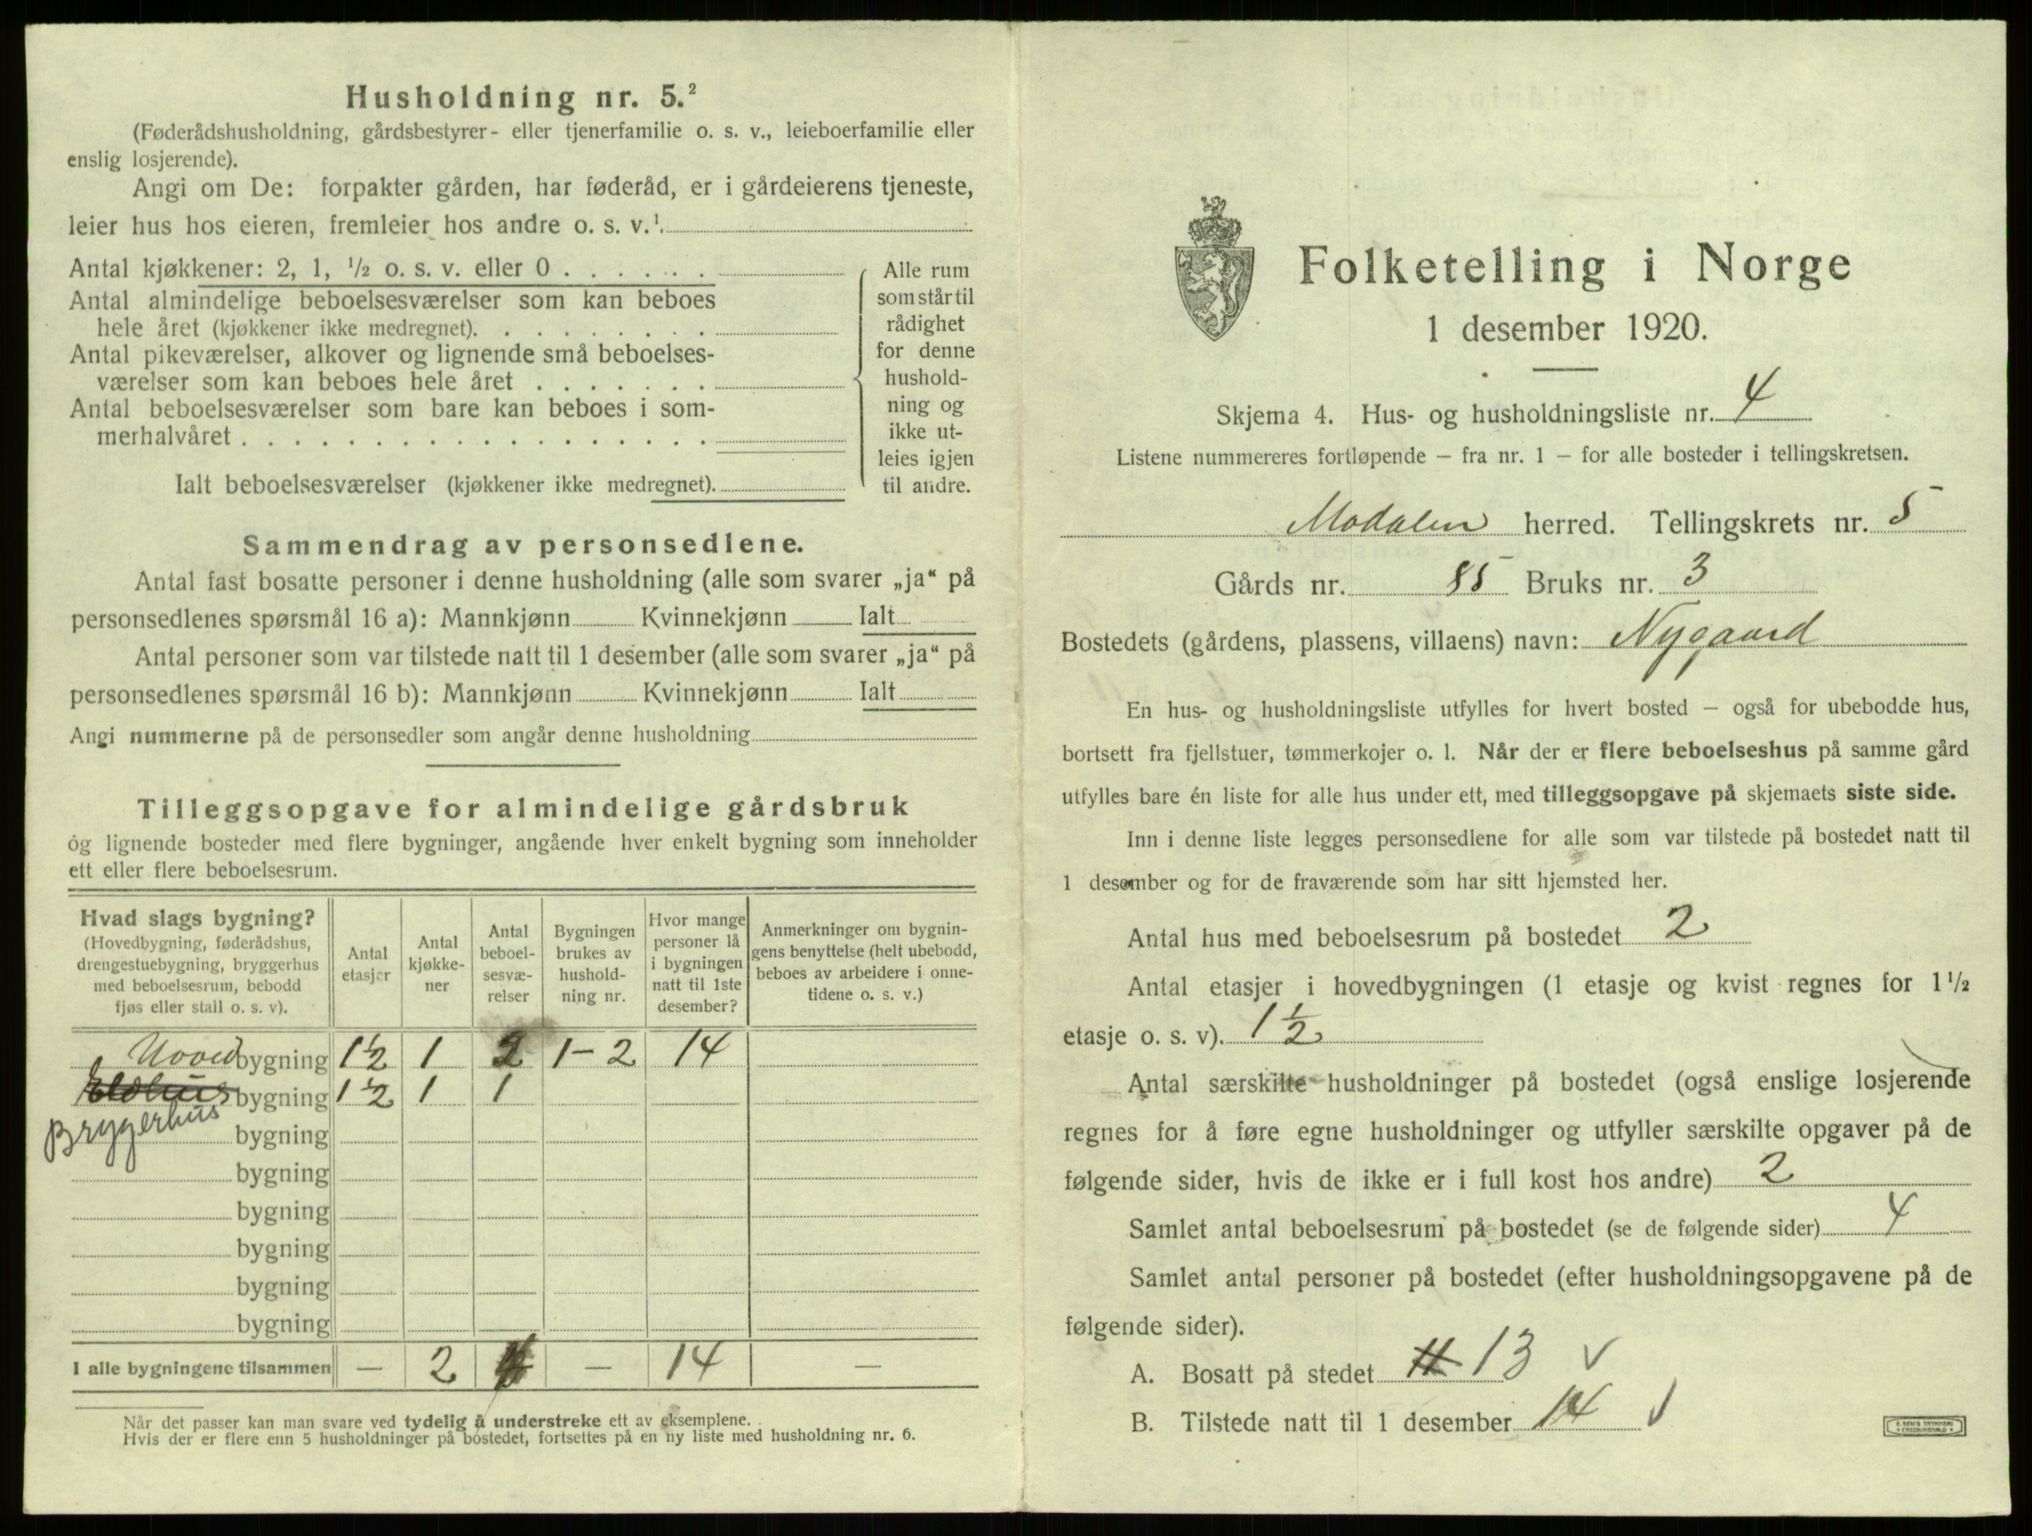 Husholdning nr. 5.²
(Føderådshusholdning, gårdsbestyrer- eller tjenerfamilie o. s. v., leieboerfamilie eller
enslig losjerende).
Angi om De: forpakter gården, har føderåd, er i gårdeierens tjeneste,
leier hus hos eieren, fremleier hos andre o. s. v.¹
Antal kjøkkener: 2, 1, ½ o. s. v. eller 0 . . . . . .
Antal almindelige beboelsesværelser som kan beboes
hele året (kjøkkener ikke medregnet). . . . . . . . .
Antal pikeværelser, alkover og lignende små beboelses-
værelser som kan beboes hele året . . . . . . .
Antal beboelsesværelser som bare kan beboes i som-
merhalvåret . . . . . . . . . . . . . . . . . .
Ialt beboelsesværelser (kjøkkener ikke medregnet).
Alle rum
som står til
rådighet
for denne
hushold-
ning og
ikke ut-
leies igjen
til andre.
Sammendrag av personsedlene.
Antal fast bosatte personer i denne husholdning (alle som svarer „ja“ på
personsedlenes spørsmål 16 a): Mannkjønn Kvinnekjønn Ialt
Antal personer som var tilstede natt til 1 desember (alle som svarer „ja“ på
personsedlenes spørsmål 16 b): Mannkjønn Kvinnekjønn Ialt
Angi nummerne på de personsedler som angår denne husholdning
Tilleggsopgave for almindelige gårdsbruk
og lignende bosteder med flere bygninger, angående hver enkelt bygning som inneholder
ett eller flere beboelsesrum.
Hvad slags bygning?
(Hovedbygning, føderådshus,
drengestuebygning, bryggerhus
med beboelsesrum, bebodd
fjøs eller stall o. s. v).
Antal
etasjer
Antal
kjøkke-
ner
Antal
beboel-
sesvæ-
relser
Bygningen
brukes av
hushold-
ning nr.
Hvor mange
personer lå
i bygningen
natt til 1ste
desember?
Anmerkninger om bygnin-
gens benyttelse (helt ubebodd,
beboes av arbeidere i onne-
tidene o. s. v.)
Hovedbygning 1½ 1 2 1-2 14
Eldhus bygning 1½ 1 1
Bryggerhus bygning
bygning
bygning
bygning
bygning
bygning
I alle bygningene tilsammen — 2 — 14 —
Når det passer kan man svare ved tydelig å understreke ett av eksemplene.
Hvis der er flere enn 5 husholdninger på bostedet, fortsettes på en ny liste med husholdning nr. 6.
Folketelling i Norge
1 desember 1920.
Skjema 4. Hus- og husholdningsliste nr. 4
Listene nummereres fortløpende — fra nr. 1 — for alle bosteder i tellingskretsen.
Modalen herred. Tellingskrets nr. 5
Gårds nr. 85 Bruks nr. 3
Bostedets (gårdens, plassens, villaens) navn: Nygaard
En hus- og husholdningsliste utfylles for hvert bosted — også for ubebodde hus,
bortsett fra fjellstuer, tømmerkojer o. l. Når der er flere beboelseshus på samme gård
utfylles bare én liste for alle hus under ett, med tilleggsopgave på skjemaets siste side.
Inn i denne liste legges personsedlene for alle som var tilstede på bostedet natt til
1 desember og for de fraværende som har sitt hjemsted her.
Antal hus med beboelsesrum på bostedet 2
Antal etasjer i hovedbygningen (1 etasje og kvist regnes for 1½
etasje o. s. v). 1½
Antal særskilte husholdninger på bostedet (også enslige losjerende
regnes for å føre egne husholdninger og utfyller særskilte opgaver på de
følgende sider, hvis de ikke er i full kost hos andre) 2
Samlet antal beboelsesrum på bostedet (se de følgende sider) 4
Samlet antal personer på bostedet (efter husholdningsopgavene på de
følgende sider).
A. Bosatt på stedet 11 13 √
B. Tilstede natt til 1 desember 14 √
E. SEM'S TRYKKERI
FREDRIKSHALD